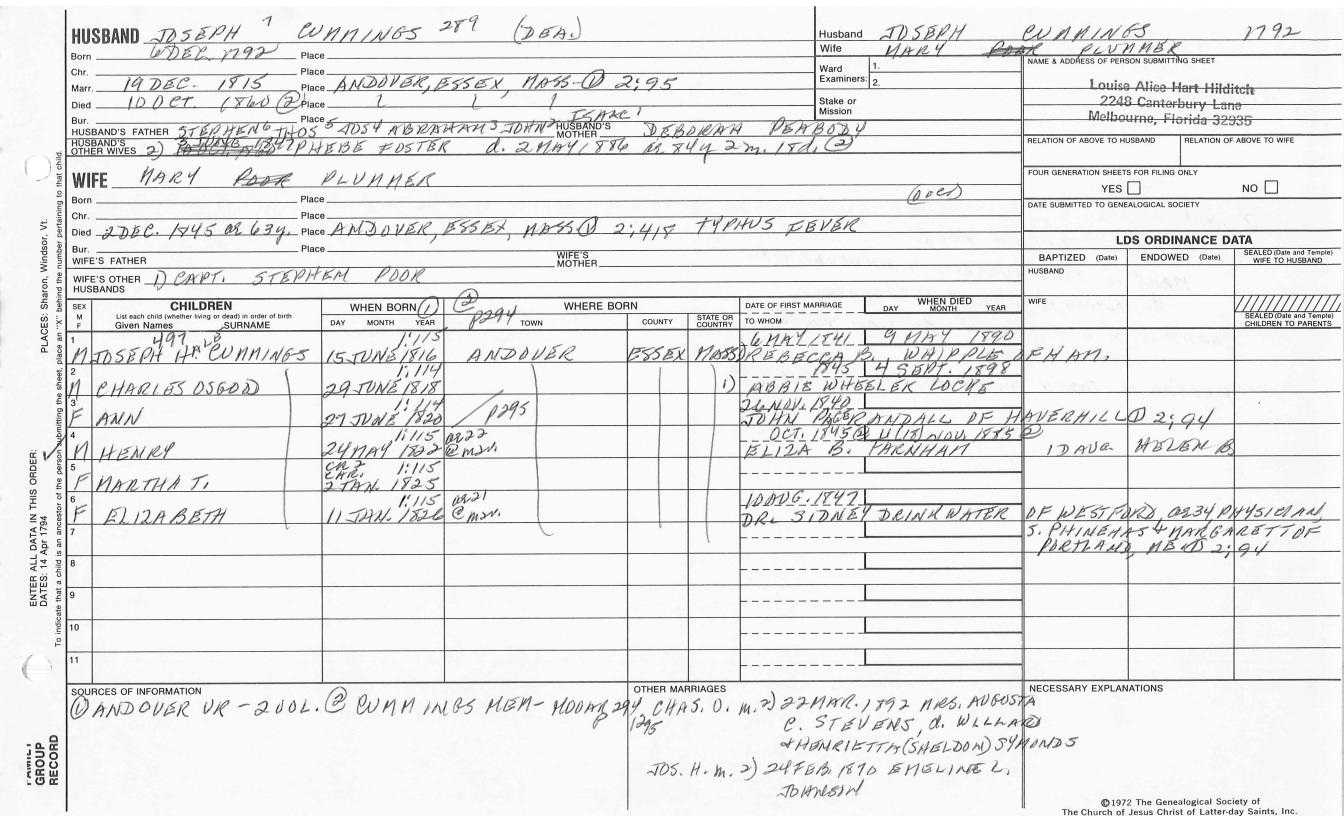 HUSBAND JOSEPH 7 CUMMINGS 289 (DEA.)
Born 6 DEC. 1792 Place
Chr. Place
Marr. 19 DEC. 1815 Place ANDOVER, ESSEX, MASS ① 2;95
Died 10 OCT. 1860 ② Place
Bur. Place
HUSBAND'S FATHER STEPHEN 6 THOS 5 JOS 4 ABRAHAM 3 JOHN 2 ISAAC 1 HUSBAND'S MOTHER DEBORAH PEABODY
HUSBAND'S OTHER WIVES 2) PHEBE FOSTER d. 2 MAY 1886 84y 2m. 18d. ②
Husband JOSEPH CUMMINGS 1792
Wife MARY POOR PLUMMER
Ward Examiners: 1.
2.
Stake or Mission
NAME & ADDRESS OF PERSON SUBMITTING SHEET
Louise Alice Hart Hilditch
2248 Canterbury Lane
Melbourne, Florida 32935
RELATION OF ABOVE TO HUSBAND RELATION OF ABOVE TO WIFE
FOUR GENERATION SHEETS FOR FILING ONLY
YES NO
DATE SUBMITTED TO GENEALOGICAL SOCIETY
WIFE MARY POOR PLUMMER
Born Place
Chr. Place
Died 2 DEC. 1845 ae 63y. Place ANDOVER, ESSEX, MASS ① 2;418 TYPHUS FEVER
Bur. Place
WIFE'S FATHER WIFE'S MOTHER
WIFE'S OTHER HUSBANDS 1) CAPT. STEPHEM POOR
LDS ORDINANCE DATA
BAPTIZED (Date) ENDOWED (Date) SEALED (Date and Temple) WIFE TO HUSBAND
HUSBAND
WIFE
SEALED (Date and Temple) CHILDREN TO PARENTS
SEX M F CHILDREN List each child (whether living or dead) in order of birth Given Names SURNAME
WHEN BORN ① DAY MONTH YEAR
② P294 WHERE BORN TOWN COUNTY STATE OR COUNTRY
DATE OF FIRST MARRIAGE TO WHOM
WHEN DIED DAY MONTH YEAR
1 497 1:115 6 MAY 1841 9 MAY 1890
M JOSEPH HALE CUMMINGS 15 JUNE 1816 ANDOVER ESSEX MASS REBECCA B. WHIPPLE OF HAM.
2 1:114 1845 4 SEPT. 1898
M CHARLES OSGOOD 29 JUNE 1818 1) ABBIE WHEELER LOCKE
3 1:114 P295 26 NOV. 1840
F ANN 27 JUNE 1820 JOHN PAGE RANDALL OF HAVERHILL ① 2;94
4 1:115 ae 22 OCT. 1845 ② NOV. 1885 ②
M HENRY 24 MAY 1822 @ m. ELIZA B. FARNHAM 1 DAUG. HELEN B.
5 1:115
F MARTHA T. 2 JAN. 1825
6 1:115 ae 21 10 AUG. 1847
F ELIZABETH 11 JAN. 1826 @ m. DR. SIDNEY DRINKWATER OF WESTFORD, ae 34 PHYSICIAN,
7 S. PHINEHAS & MARGARETT OF
PORTLAND, 2;94
8
9
10
11
SOURCES OF INFORMATION
① ANDOVER VR - 2 VOL. ② CUMMINGS MEM- MOOAR p 294, 295
OTHER MARRIAGES
CHAS. O. m. 2) 22 MAR. 1892 MRS. AUGUSTA
C. STEVENS, d. WILLARD
& HENRIETTA (SHELDON) SYMONDS
JOS. H. m. 2) 24 FEB. 1870 EMELINE L.
JOHNSON
NECESSARY EXPLANATIONS
©1972 The Genealogical Society of
The Church of Jesus Christ of Latter-day Saints, Inc.
ENTER ALL DATA IN THIS ORDER:
DATES: 14 Apr 1794 PLACES: Sharon, Windsor, Vt.
To indicate that a child is an ancestor of the person submitting the sheet, place an "X" behind the number pertaining to that child.
FAMILY GROUP RECORD